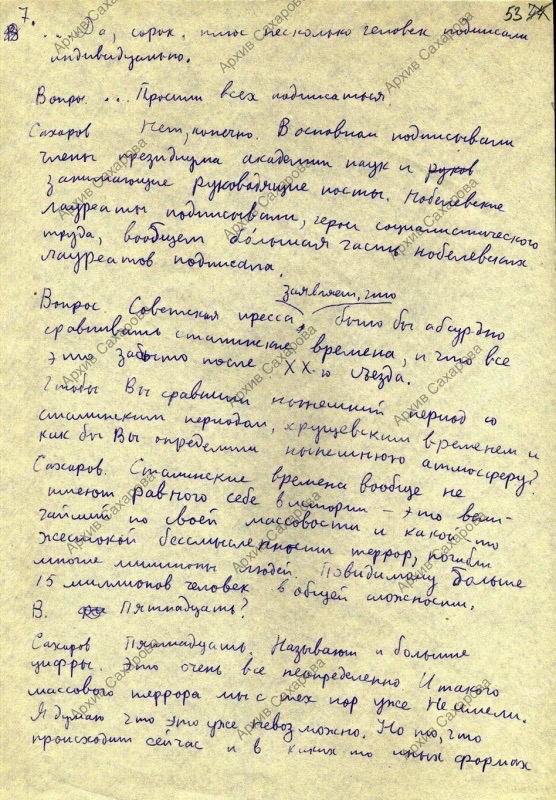 7.
53
... а, сорок. плюс несколько человек подписали
индивидуально.
Вопрос. ... Просили всех подписаться
Сахаров Нет, конечно. В основном подписывали
члены президиума академии наук и
занимающие руководящие посты. Нобелевские
лауреаты подписывали, герои социалистического
труда, вообщем большая часть нобелевских
лауреатов подписала.
заявляет, что
Вопрос Советская пресса, было бы абсурдно
сравнивать сталинские времена, и что все
это забыто после XX-го съезда.
Чтобы Вы сравнили нынешний период со
сталинским периодом, хрущевским временем и
как бы Вы определили нынешнюю атмосферу?
Сахаров. Сталинские времена вообще не
имеют равного себе в истории – это
по своей массовости и какой-то
жестокой бессмысленности террор, погибли
многие миллионы людей. Повидимому больше
15 миллионов человек в общей сложности.
В. Пятнадцать?
Сахаров Пятнадцать. Называют и большие
цифры. Это очень все неопределенно И такого
массового террора мы с тех пор уже не имели.
Я думаю что это уже невозможно. Но то, что
происходит сейчас и в каких то иных формах
Архив Сахарова